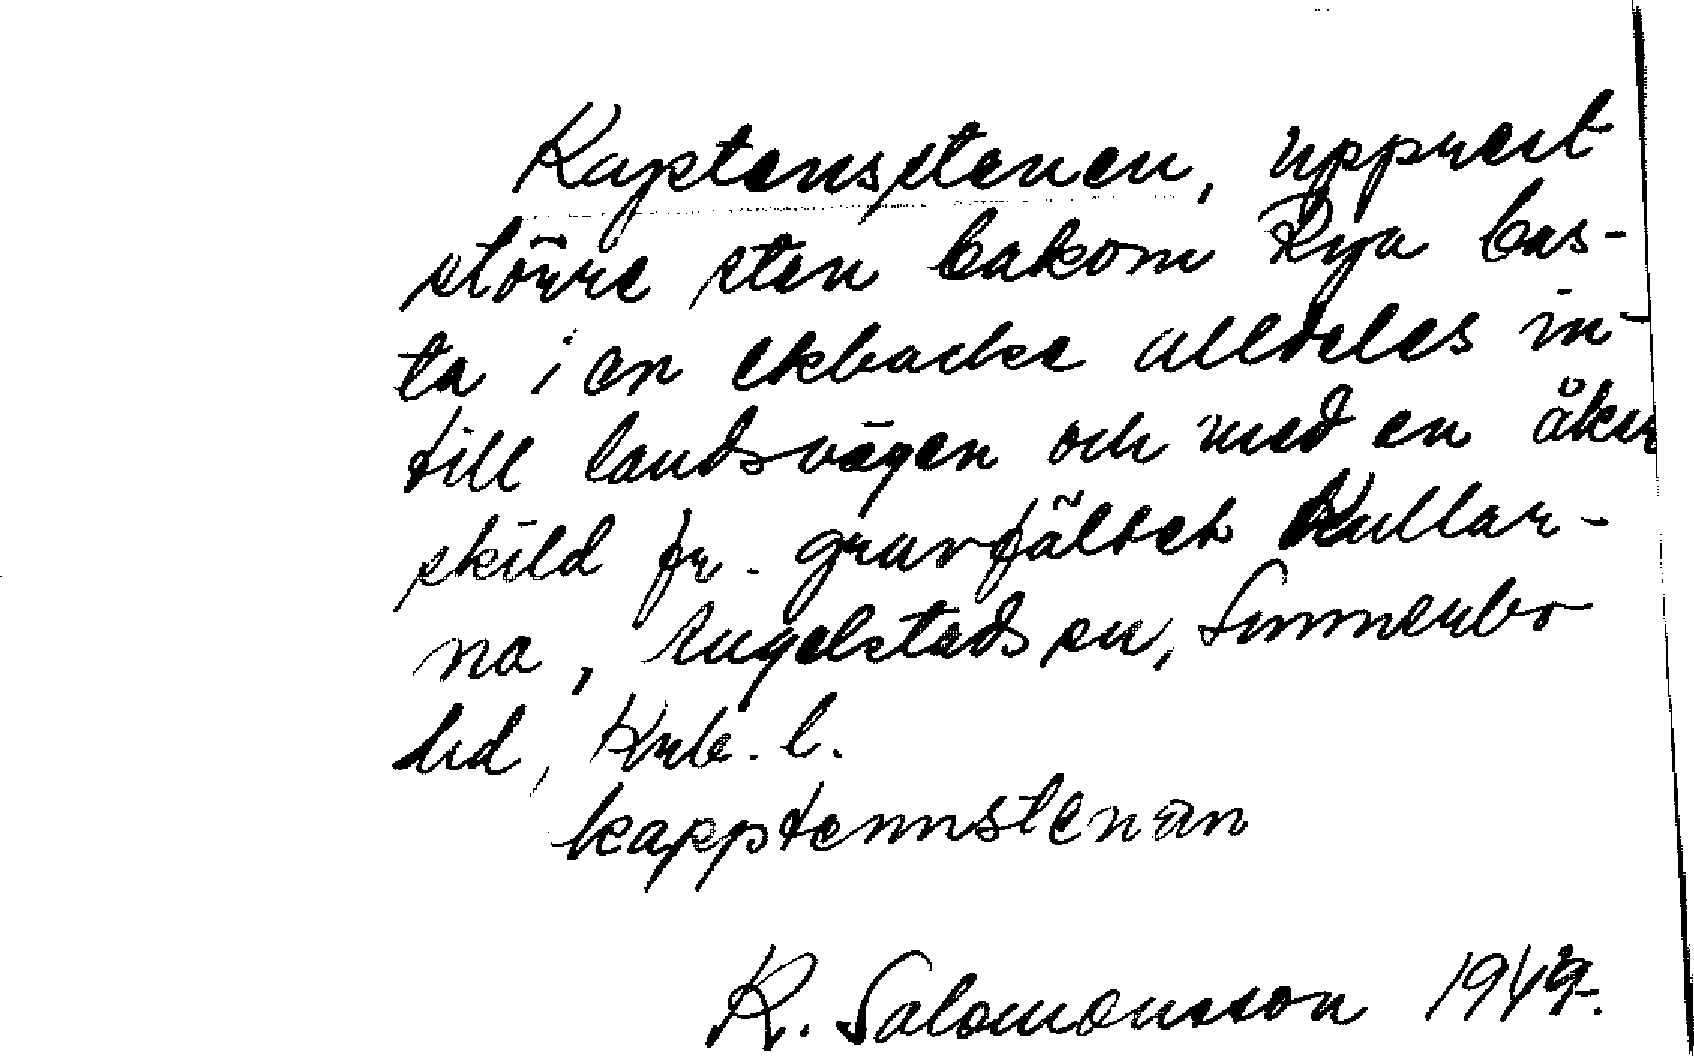 Kaptensstenen, upprest
större sten bakom Rya bas-
ta i en ekbacke alldeles in-
till landsvägen och med en åker
skild fr. gravfältet Kullar-
na, Angelstads sn, Sunnerbo
hd, Krb. l.
kapptennstenan
R. Salomonsson 1949.